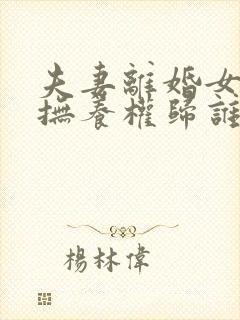 夫妻離婚女
撫養權歸誰
楊林偉